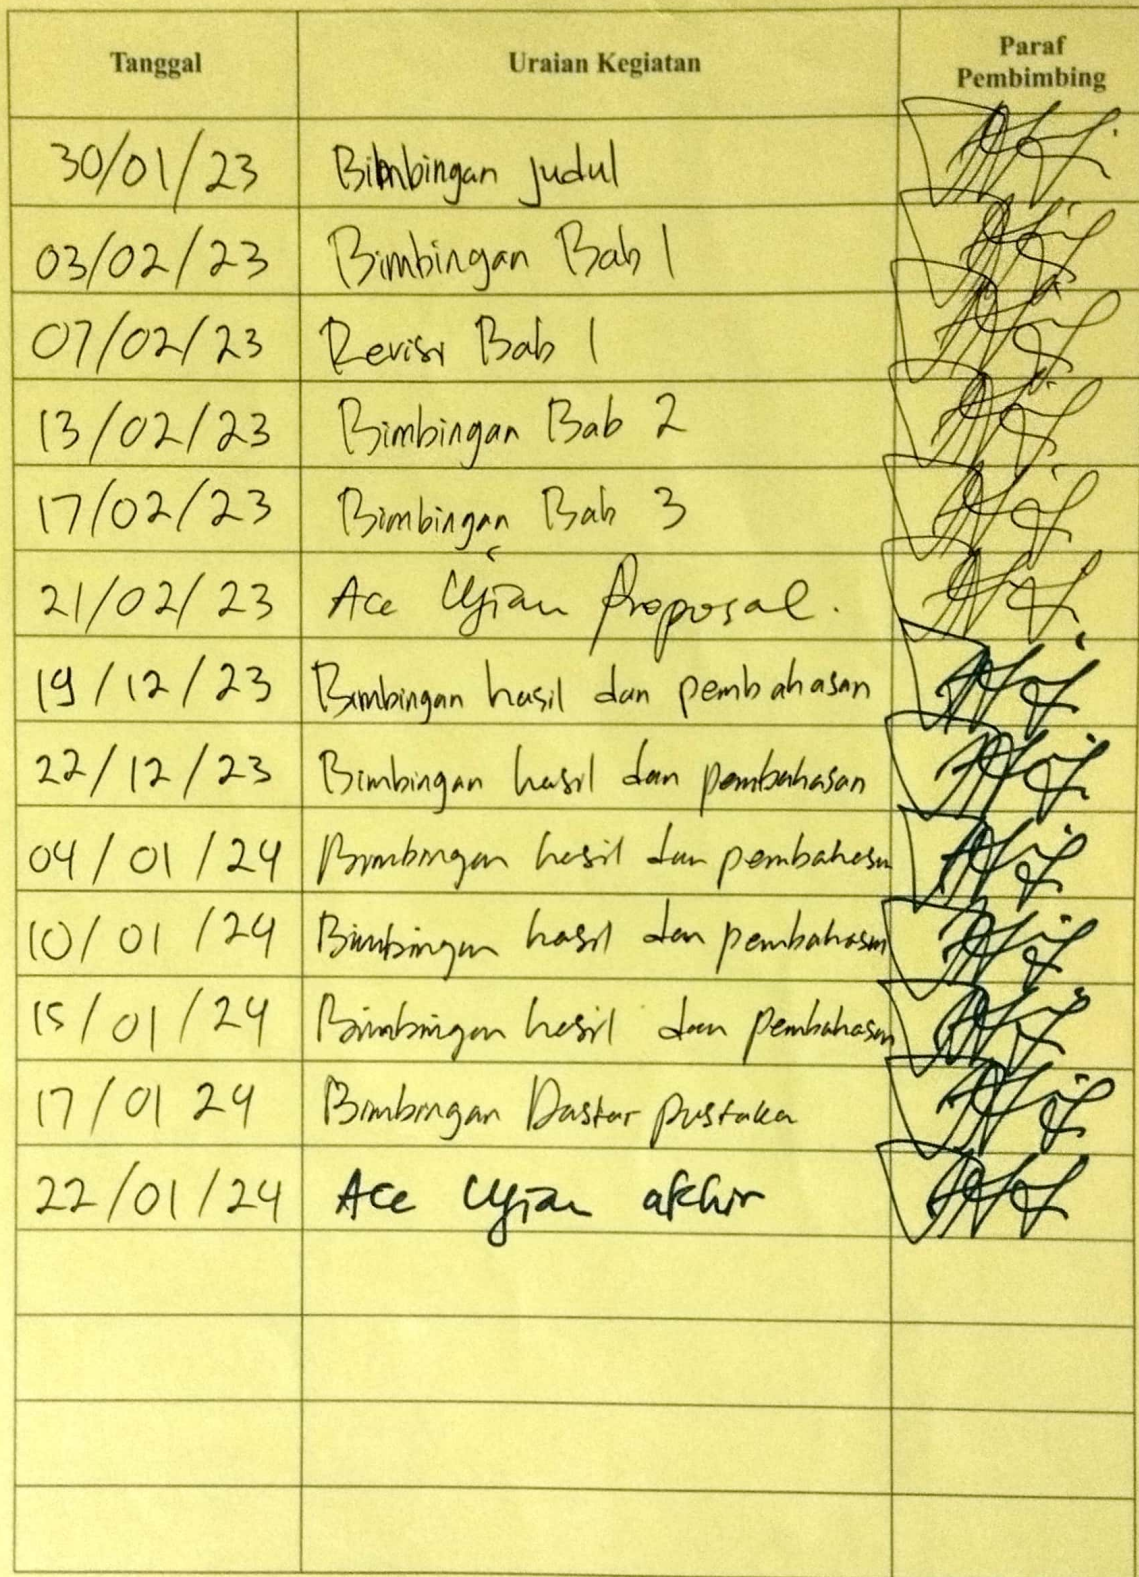 Tanggal Uraian Kegiatan Paraf
Pembimbing
30/01/23 Bimbingan judul
03/02/23 Bimbingan Bab 1
07/02/23 Revisi Bab 1
13/02/23 Bimbingan Bab 2
17/02/23 Bimbingan Bab 3
21/02/23 Acc Ujian Proposal.
19/12/23 Bimbingan hasil dan pembahasan
22/12/23 Bimbingan hasil dan pembahasan
04/01/24 Bimbingan hasil dan pembahasan
10/01/24 Bimbingan hasil dan pembahasan
15/01/24 Bimbingan hasil dan pembahasan
17/01 24 Bimbingan Dastar pustaka
22/01/24 Acc Ujian akhir